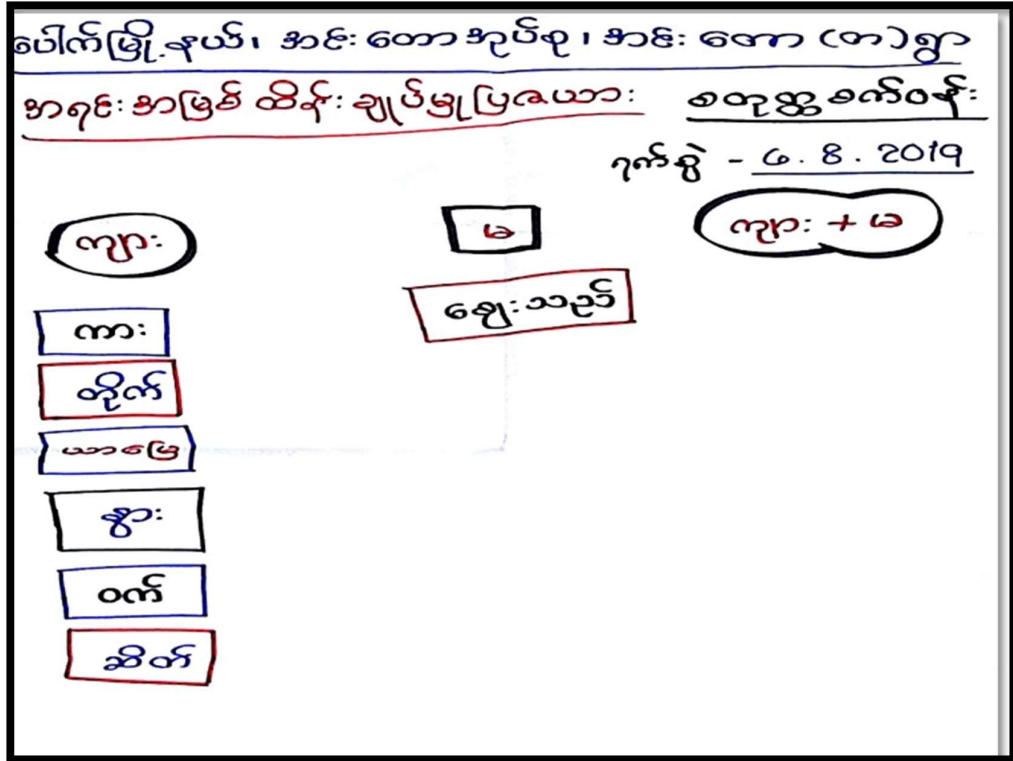 ပေါက်မြို့နယ်၊ အင်းတောအုပ်စု၊ အင်းတော (တ) ရွာ
အရင်းအမြစ် ထိန်းချုပ်မှုပြဇယား စတုတ္ထစက်ဝန်း
ရက်စွဲ - 6.8.2019
ကျား မ ကျား + မ
ဈေးသည်
ကား
တိုက်
ယာမြေ
နွား
ဝက်
ဆိတ်